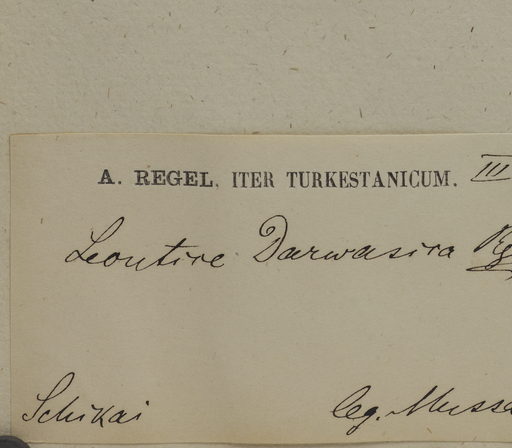 A. REGEL. ITER TURKESTANICUM. III
Leontice Darwasica Rg
Schikai leg. Mussa